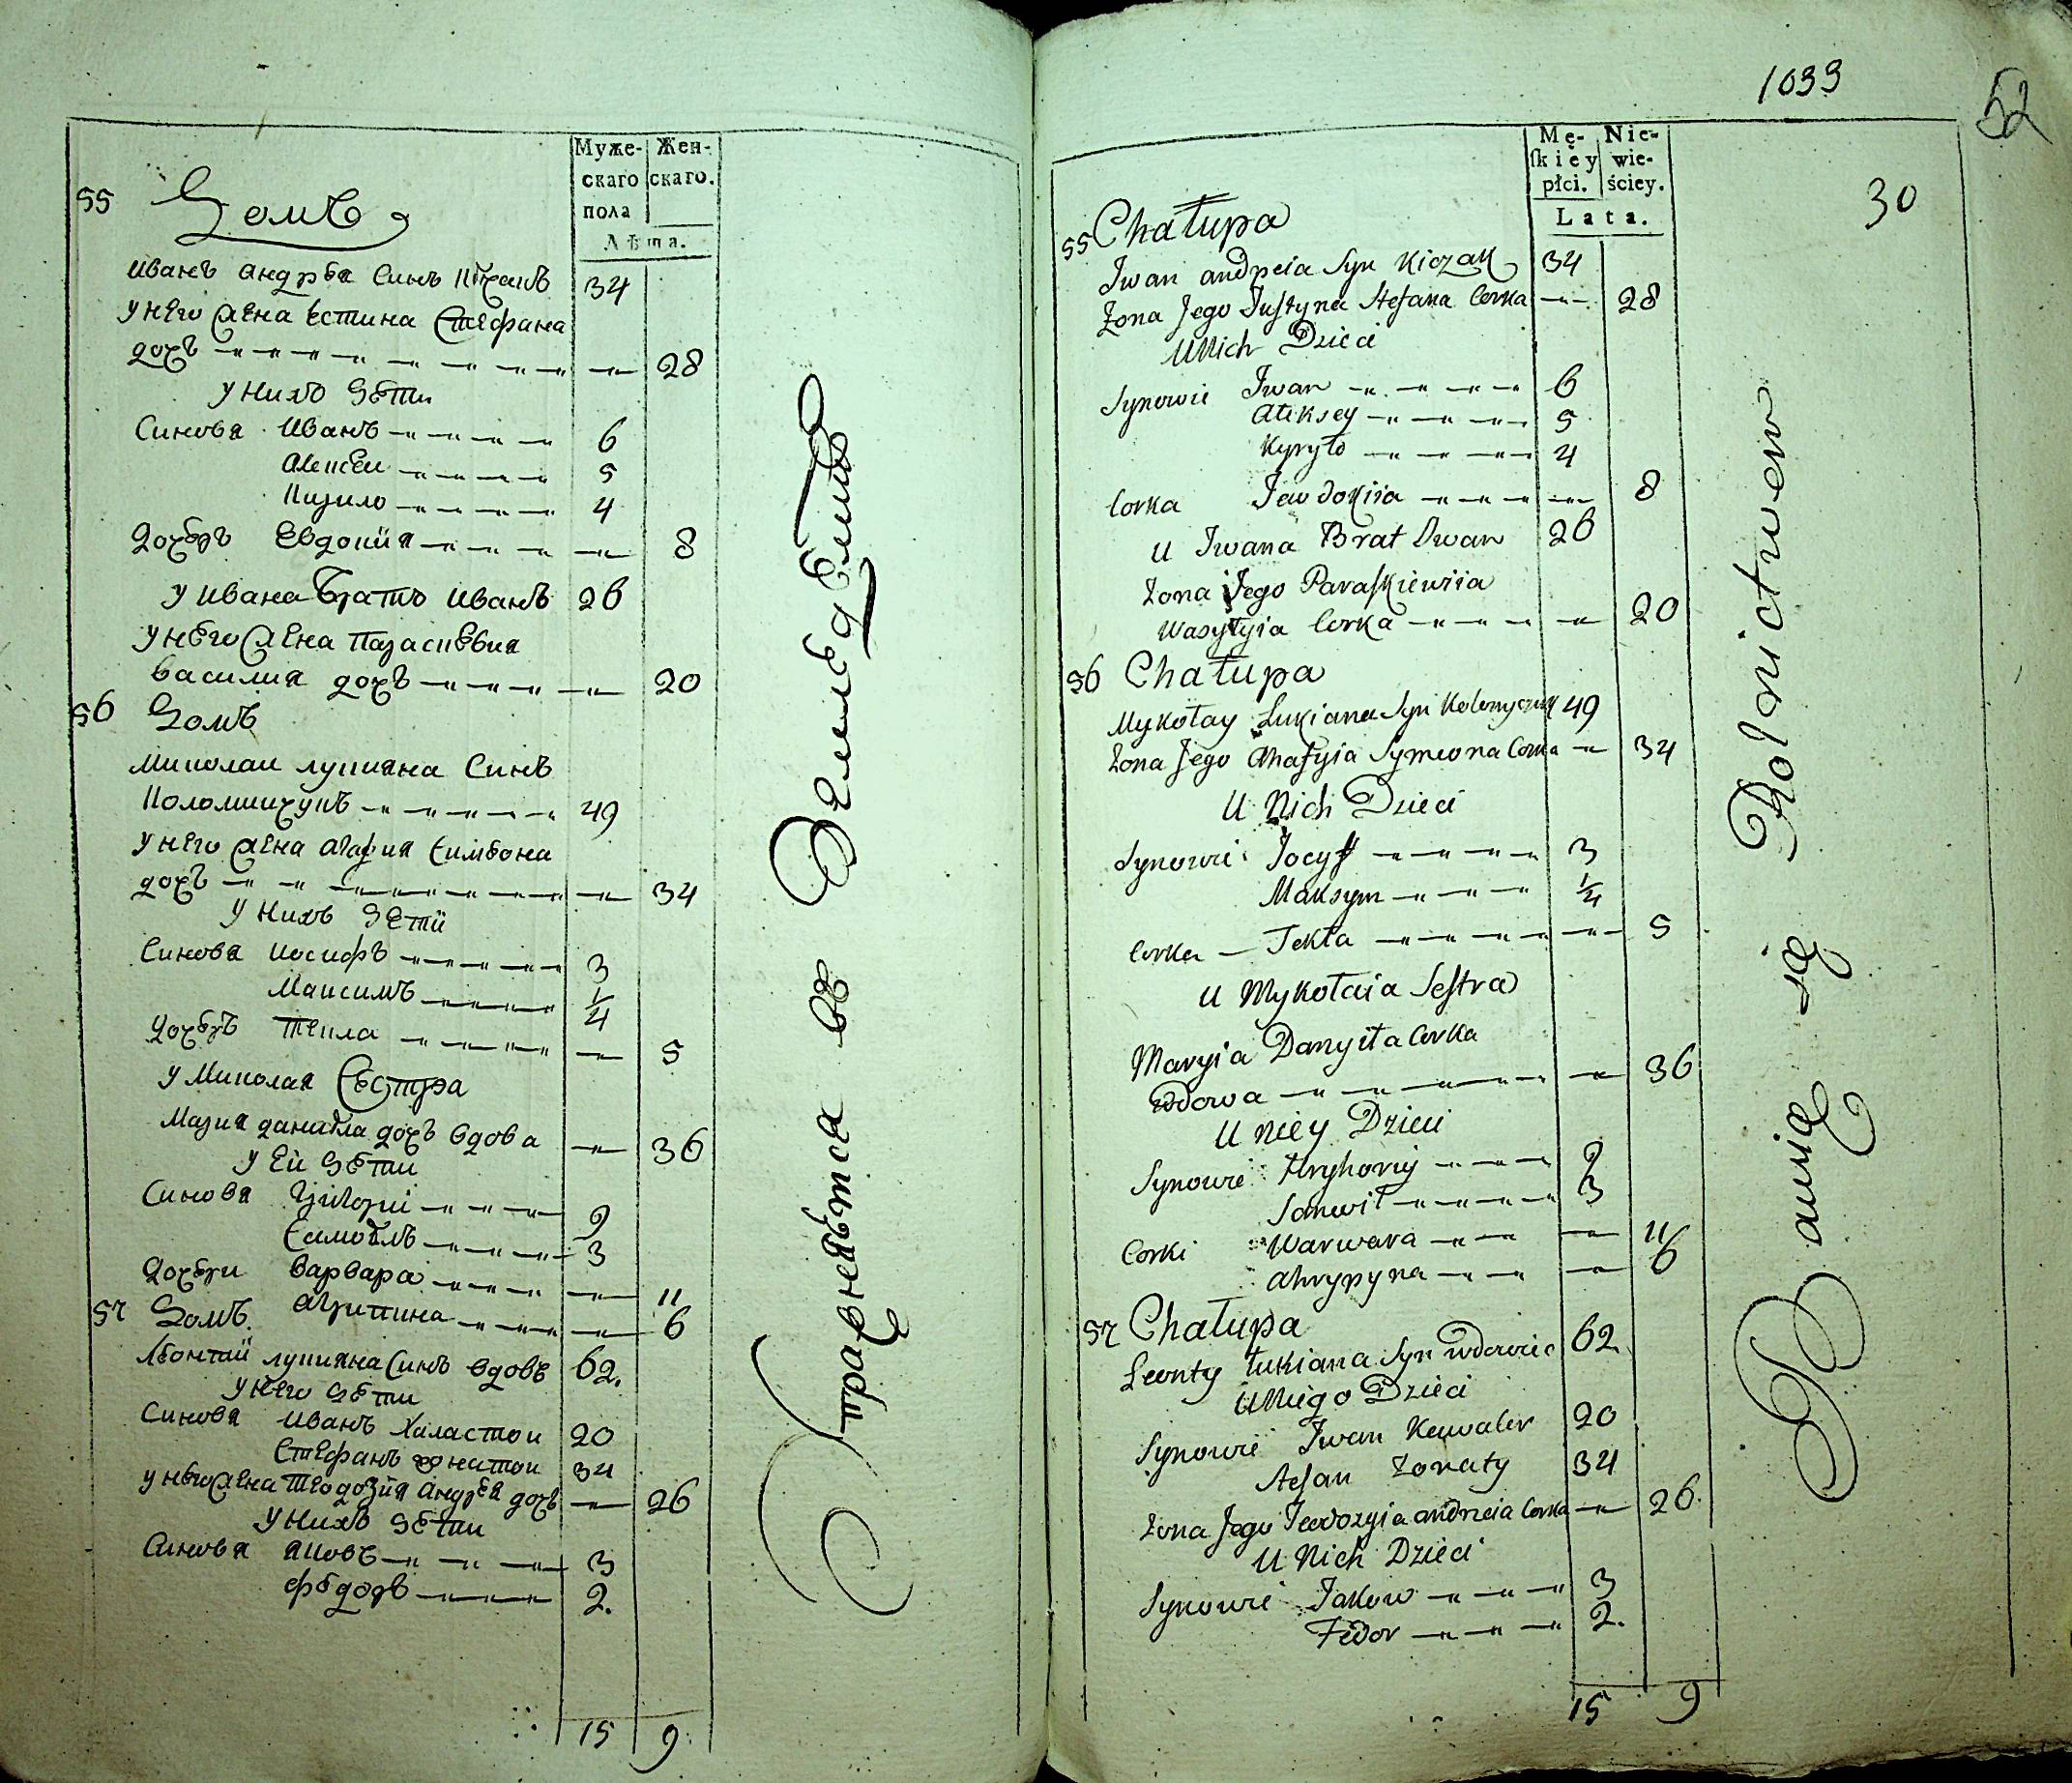 Муже- Жен-
скаго скаго.
пола
Лѣта.
55 Домъ
Иванъ Андрѣя Синъ Кичакъ 34
У него жена Естина Стефана
дочъ 28
У нихъ Дѣти
Синовя Иванъ 6
Алексеи 5
Кирило 4
Дочѣръ Евдокия 8
У Ивана Братъ Иванъ 26
У него жена Параскѣвия
Василия дочъ 20
56 Домъ
Миколаи Лукияна Синъ
Коломийчукъ 49
У него жена Агафия Симѣона
дочъ 34
У нихъ Дѣти
Синовя Иосифъ 3
Максимъ 1/4
Дочѣръ Текла 5
У Миколая Сестра
Мария Данила дочъ вдова 36
У Ей Дѣти
Синовя Григори 9
Самоѣлъ 3
Дочѣри Варвара 11
Агрипина 6
57 Домъ
Лѣонтий Лукияна Синъ вдовѣ 62.
У него Дѣти
Синовя Иванъ Халастои 20
Стефанъ жонатои 34
У него жена Теодозия Андрея дочъ 26
У нихъ Дѣти
Синовя Яковъ 3
Фѣдоръ 2.
15 9
въ Земледѣлие
1033
52
30
Mę- Nie-
skiey wie-
płci. ściey.
Lata.
55 Chałupa
Jwan Andreia Syn Kiczak 34
Zona Jego Justyna Stefana Corka 28
U Nich Dzieci
Synowie Jwan 6
Ałeksey 5
Kyryło 4
Corka Jewdokiia 8
U Jwana Brat Jwan 26
Zona Jego Paraskiewiia
Wasylyia Corka 20
56 Chałupa
Mykołay Lukiana Syn Kolomyczuk 49
Zona Jego Ahafyia Symeona Corka 34
U Nich Dzieci
Synowie Jocyf 3
Maksym 1/4
Corka Tekla 5
U Mykołaia Sestra
Maryia Danyiła Corka
Wdowa 36
U Niey Dzieci
Synowie Hryhoriy 9
Samuił 3
Corki Warwara 11
Ahrypyna 6
57 Chałupa
Leonty Łukiana Syn wdowiec 62.
U Niego Dzieci
Synowie Jwan Kawaler 20
Stefan Zonaty 34
Zona Jego Teodozyia Andreia Corka 26.
U Nich Dzieci
Synowie Jakow 3
Fedor 2.
15 9
Bawią się Rolnictwem